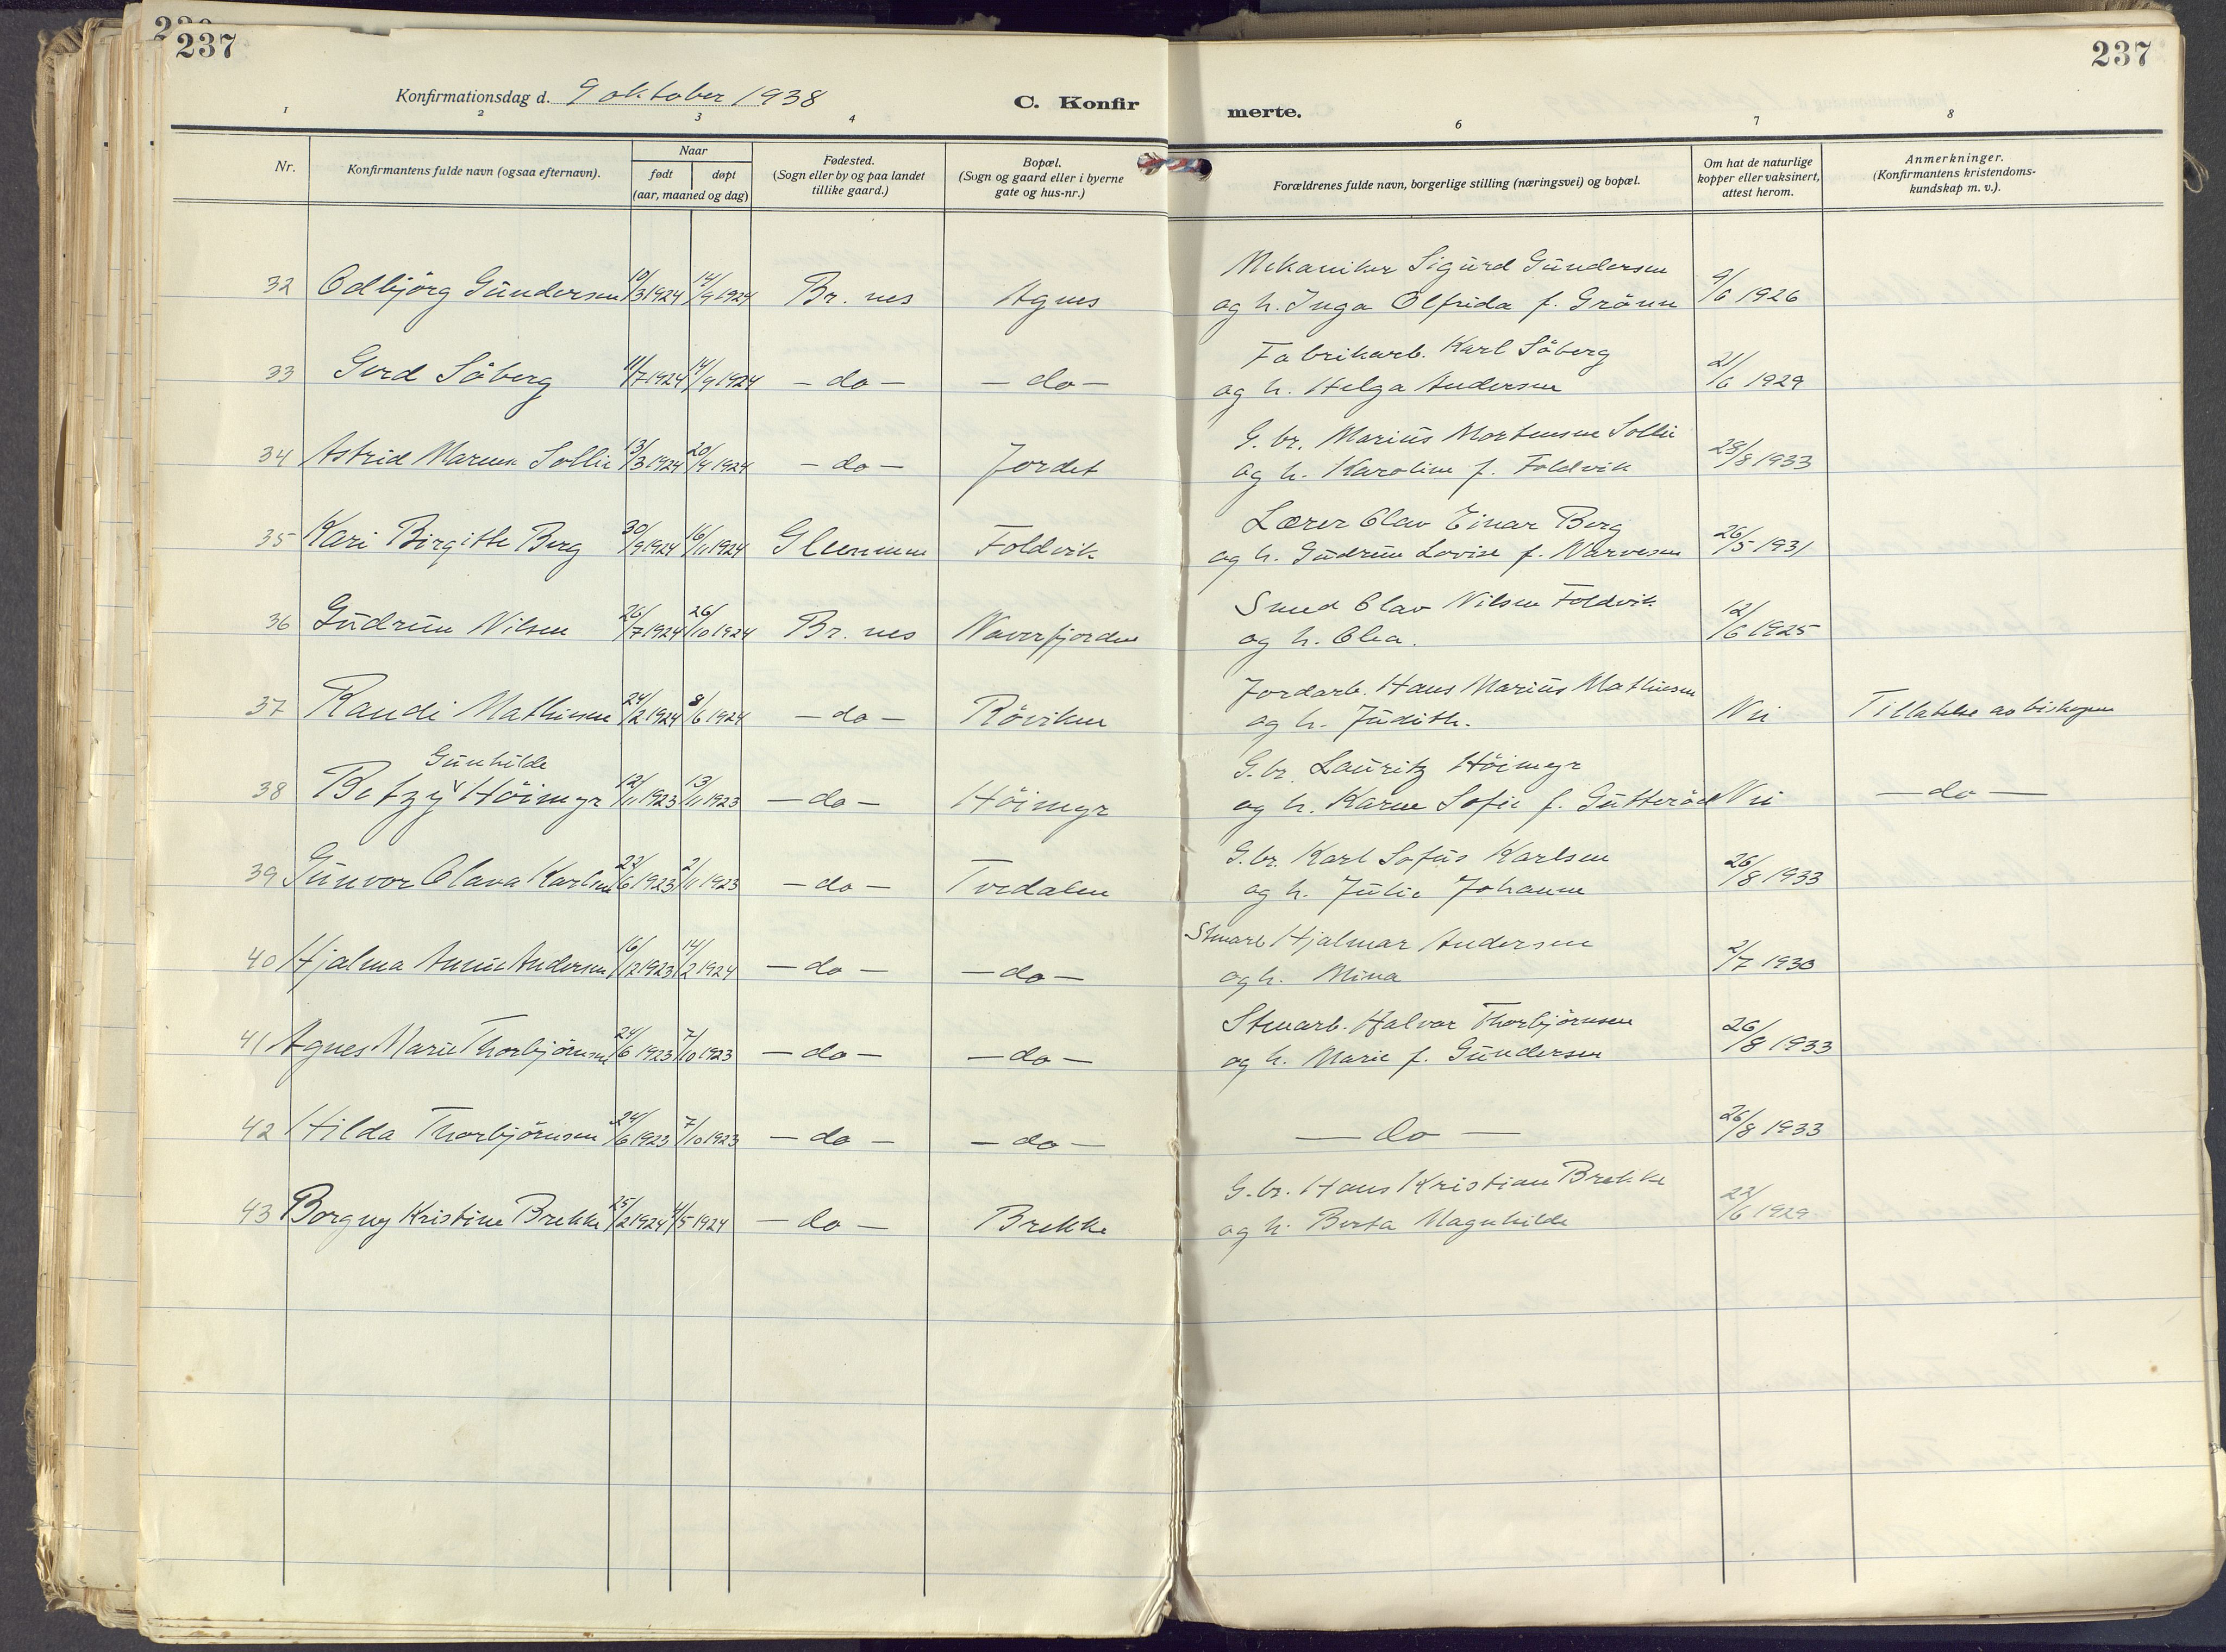 237
237
Konfirmationsdag d. 9 oktober 1938
C. Konfir
merte.
1 2 3 4 6 7 8
Nr.
Konfirmantens fulde navn (ogsaa efternavn).
Naar
født
døpt
(aar, maaned og dag)
Fødested.
(Sogn eller by og paa landet
tillike gaard.)
Bopæl.
(Sogn og gaard eller i byerne
gate og hus-nr.)
Forældrenes fulde navn, borgerlige stilling (næringsvei) og bopæl.
Om hat de naturlige
kopper eller vaksinert,
attest herom.
Anmerkninger.
(Konfirmantens kristendoms-
kundskap m. v.).
Mekaniker Sigurd Gundersen
32 Odbjörg Gundersen 10/3 1924 14/9 1924 Br. nes Agnes og h. Inga Olfrida f. Grönn 9/6 1926
Fabrikarb. Karl Söberg
33 Gerd Söberg 11/7 1924 14/9 1924 – do – – do – og h. Helga Andersen 21/6 1929
G. br. Marius Mortensen Sollie
34 Astrid Maren Sollie 3/3 1924 20/4 1924 – do – Jordet og h. Karoline f. Foldvik 28/8 1933
Lærer Olav Einar Berg
35 Kari Birgitte Berg 30/9 1924 16/11 1924 Glemmen Foldvik og h. Gudrun Lovise f. Narvesen 26/5 1931
Smed Olav Nilsen Foldvik
36 Gudrun Nilsen 26/7 1924 26/10 1924 Br. nes Naverfjorden og h. Olea. 12/6 1925
Jordarb. Hans Marius Mathisen
37 Randi Mathisen 24/2 1924 8/6 1924 – do – Röviken og h. Judith. Nei Tillatelse av biskopen
Gunhilde
G. br. Lauritz Höimyr
38 Betzy Höimyr 12/11 1923 13/11 1923 – do – Höimyr og h. Karen Sofie f. Gutteröd Nei – do –
G. br. Karl Sofus Karlsen
39 Gunvor Olava Karlsen 23/6 1923 2/11 1923 – do – Tvedalen og h. Julie Johanne 26/8 1933
Stenarb Hjalmar Andersen
40 Hjalma Annie Andersen 16/12 1923 14/2 1924 – do – – do – og h. Mina 2/7 1930
Stenarb. Halvor Thorbjörnsen
41 Agnes Marie Thorbjörnsen 24/6 1923 7/10 1923 – do – – do – og h. Marie f. Gundersen 26/8 1933
42 Hilda Thorbjörnsen 24/6 1923 7/10 1923 – do – – do – – do – 26/8 1933
G. br. Hans Kristian Brekke
43 Borgny Kristine Brekke 25/2 1924 4/5 1924 – do – Brekke og h. Berta Magnhilde 22/6 1929